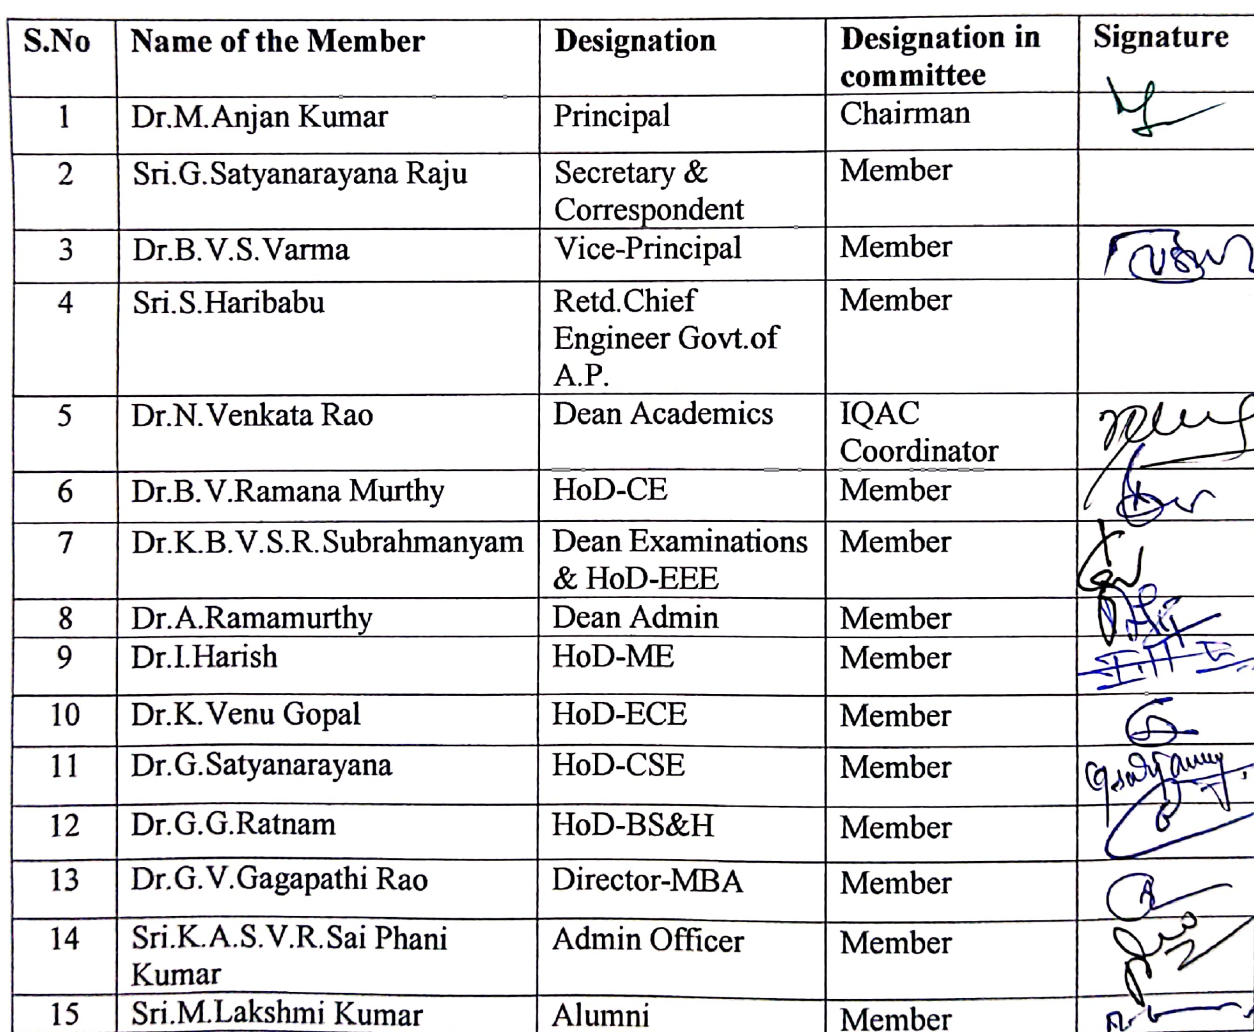 S.No Name of the Member Designation Designation in committee Signature
1 Dr.M.Anjan Kumar Principal Chairman
2 Sri.G.Satyanarayana Raju Secretary & Correspondent Member
3 Dr.B.V.S.Varma Vice-Principal Member
4 Sri.S.Haribabu Retd.Chief Engineer Govt.of A.P. Member
5 Dr.N.Venkata Rao Dean Academics IQAC Coordinator
6 Dr.B.V.Ramana Murthy HoD-CE Member
7 Dr.K.B.V.S.R.Subrahmanyam Dean Examinations & HoD-EEE Member
8 Dr.A.Ramamurthy Dean Admin Member
9 Dr.I.Harish HoD-ME Member
10 Dr.K.Venu Gopal HoD-ECE Member
11 Dr.G.Satyanarayana HoD-CSE Member
12 Dr.G.G.Ratnam HoD-BS&H Member
13 Dr.G.V.Gagapathi Rao Director-MBA Member
14 Sri.K.A.S.V.R.Sai Phani Kumar Admin Officer Member
15 Sri.M.Lakshmi Kumar Alumni Member